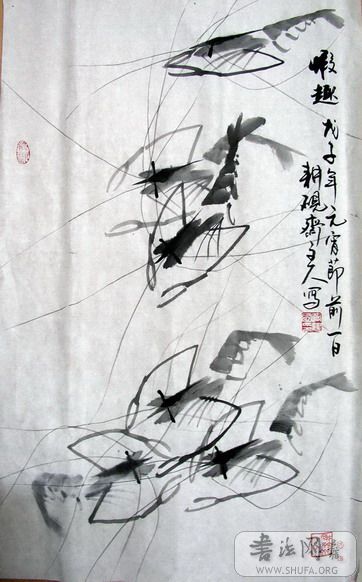 暇趣
戊子年元宵節前一日
耕硯齋主人写
书法网
WWW.SHUFA.ORG